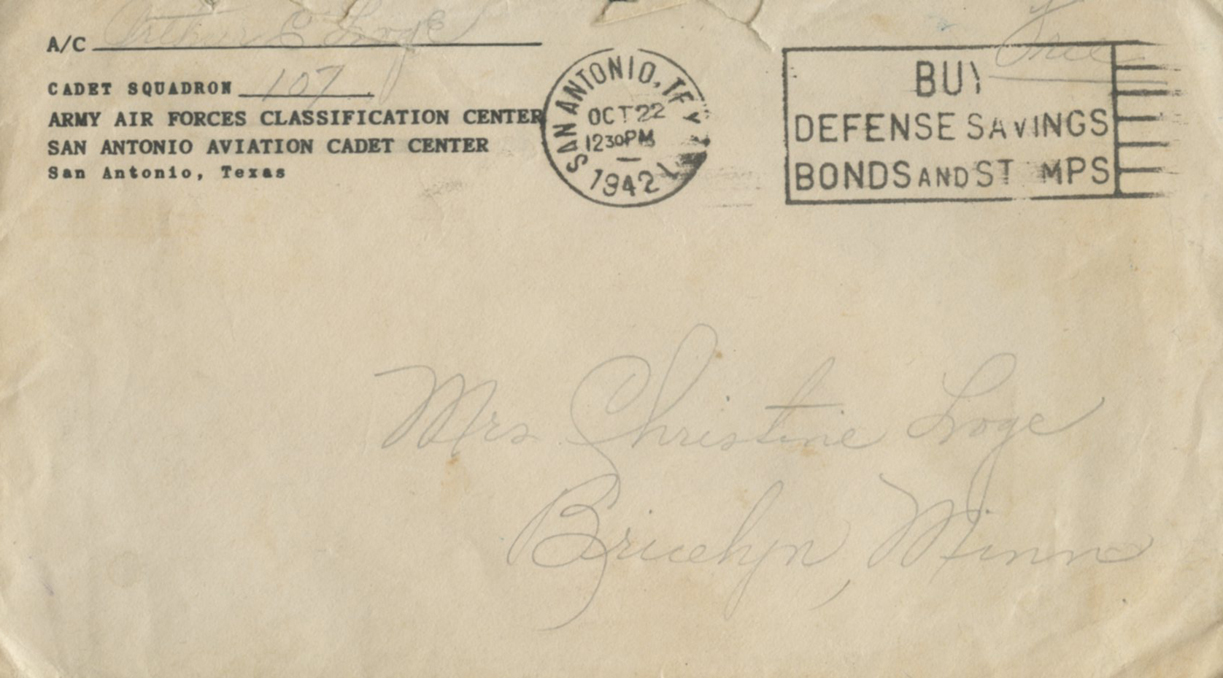 A/C Arthur E Loge
Free
CADET SQUADRON 107
ARMY AIR FORCES CLASSIFICATION CENTER
SAN ANTONIO AVIATION CADET CENTER
San Antonio, Texas
SAN ANTONIO, TEX
OCT 22
1230PM
1942
BUY
DEFENSE SAVINGS
BONDS AND ST MPS
Mrs Christine Loge
Bricelyn, Minn